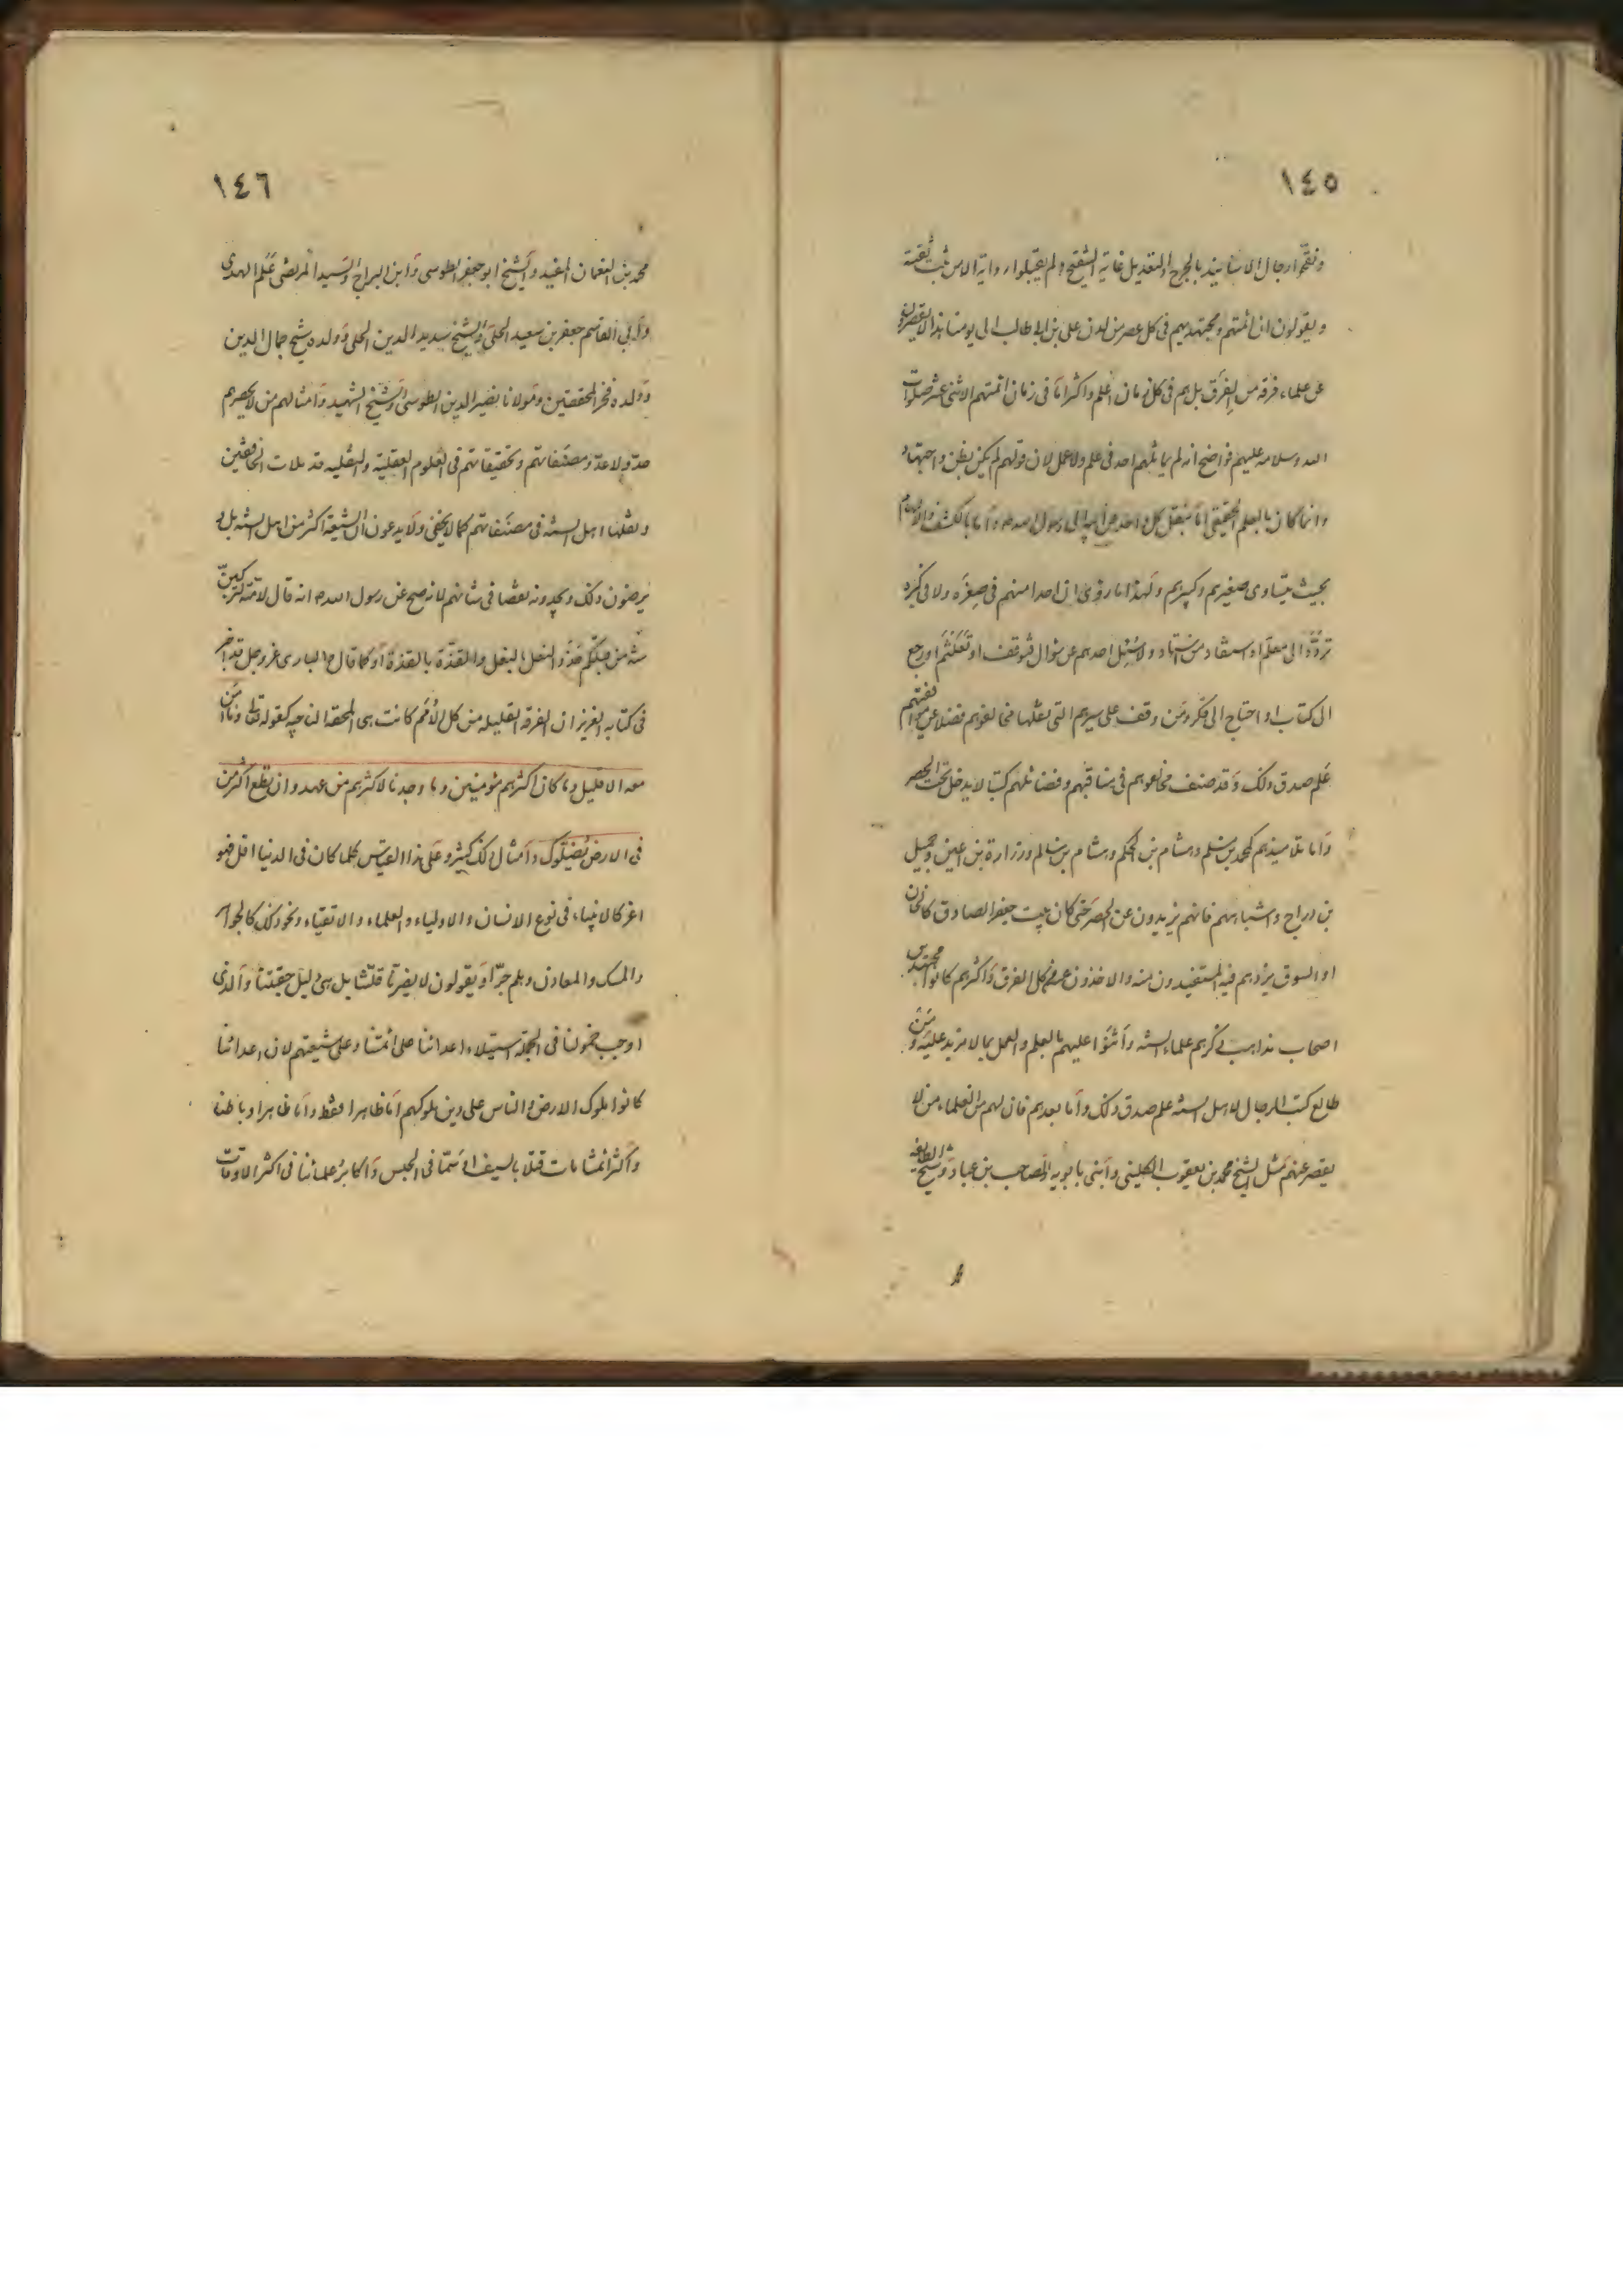 ١٤٥
ونقحوا رجال الاسانيد بالجرح والتعديل غاية التنقيح ولم يقبلوا رواية الا من ثبت ثقته
ويقولون ان ائمتهم ومجتهديهم في كل عصر من لدن علي بن ابي طالب الى يومنا هذا لا يقصرون
عن علماء فرقة من الفرق بل هم في كل زمان اعلم واكثر اما في زمان ائمتهم الاثنى عشر صلوات
الله وسلامه عليهم فواضح انه لم يماثلهم احد في علم ولا عمل لان قولهم لم يكن بظن واجتهاد
وانما كان بالعلم الحقيقي اما بنقل كل واحد عن ابيه الى رسول الله ص واما بالكشف والالهام
بحيث يتساوى صغيرهم وكبيرهم ولهذا ما روى ان احدا منهم في صغره ولا في كبره
تردد الى معلم او استفاد من استاد ولا سئل احدهم عن سؤال فتوقف او تلعثم او رجع
الى كتاب او احتاج الى فكر ومن وقف على سيرهم التي نقلها مخالفوهم فضلا عن موافقتهم
علم صدق ذلك وقد صنف مخالفوهم في مناقبهم وفضائلهم كتبا لا يدخل تحت الحصر
واما تلاميذهم كمحمد بن مسلم وهشام بن الحكم وهشام بن سالم وزرارة بن اعين وجميل
بن دراج واشباههم فانهم يزيدون عن الحصر حتى كان بيت جعفر الصادق كالخان
او السوق يزدهم فيه المستفيدون منه والاخذون عنه من كل الفرق واكثرهم كانوا مجتهدين
اصحاب مذاهب ذكرهم علماء السنه واثنوا عليهم بالعلم والعمل بما لا مزيد عليه ومن
طالع كتب الرجال لاهل السنه علم صدق ذلك واما بعدهم فان لهم من العلماء من لا
يقصر عنهم مثل الشيخ محمد بن يعقوب الكليني وابنى بابويه والصاحب بن عباد وشيخ الطايفه
١٤٦
محمد بن النعمان المفيد والشيخ ابو جعفر الطوسي وابن البراج والسيد المرتضى علم الهدى
وابي القاسم جعفر بن سعيد الحلي والشيخ سديد الدين الحلي وولده شيخ جمال الدين
وولده فخر المحققين ومولانا نصير الدين الطوسي والشيخ الشهيد وامثالهم من لا يحصرهم
حد ولا عد ومصنفاتهم وتحقيقاتهم في العلوم العقلية والنقليه قد ملات الخافقين
ونقلها اهل السنه في مصنفاتهم كما لا يخفى ولا يدعون ان الشيعة اكثر من اهل السنه بل لا
يرضون ذلك ويجدونه نقصا في شانهم لانه صح عن رسول الله ص انه قال لامته لتركبن
سنة من قبلكم حذو النعل بالنعل والقذة بالقذة او كما قال ص والبارى عز وجل قد اخبر
في كتابه العزيز ان الفرقه القليله من كل الامم كانت هي المحقة الناجيه كقوله تعالى وما آمن
معه الا قليل وما كان اكثرهم مؤمنين وما وجدنا لاكثرهم من عهد وان تطع اكثر من
في الارض يضلوك وامثال ذلك كثير وعلى هذا القياس كلما كان في الدنيا اقل فهو
اعز كالانبياء في نوع الانسان والاولياء والعلماء والاتقياء ونحو ذلك كالجواهر
والمسك والمعادن وهلم جرا ويقولون لا يضرنا قلتنا بل هي دليل حقيتنا والذى
اوجب خمولنا في الجملة استيلاء اعدائنا على ائمتنا وعلى شيعتهم لان اعدائنا
كانوا ملوك الارض والناس على دين ملوكهم اما ظاهرا فقط واما ظاهرا وباطنا
واكثر ائمتنا مات قتلا بالسيف او سما في الحبس واكابر علمائنا في اكثر الاوقات